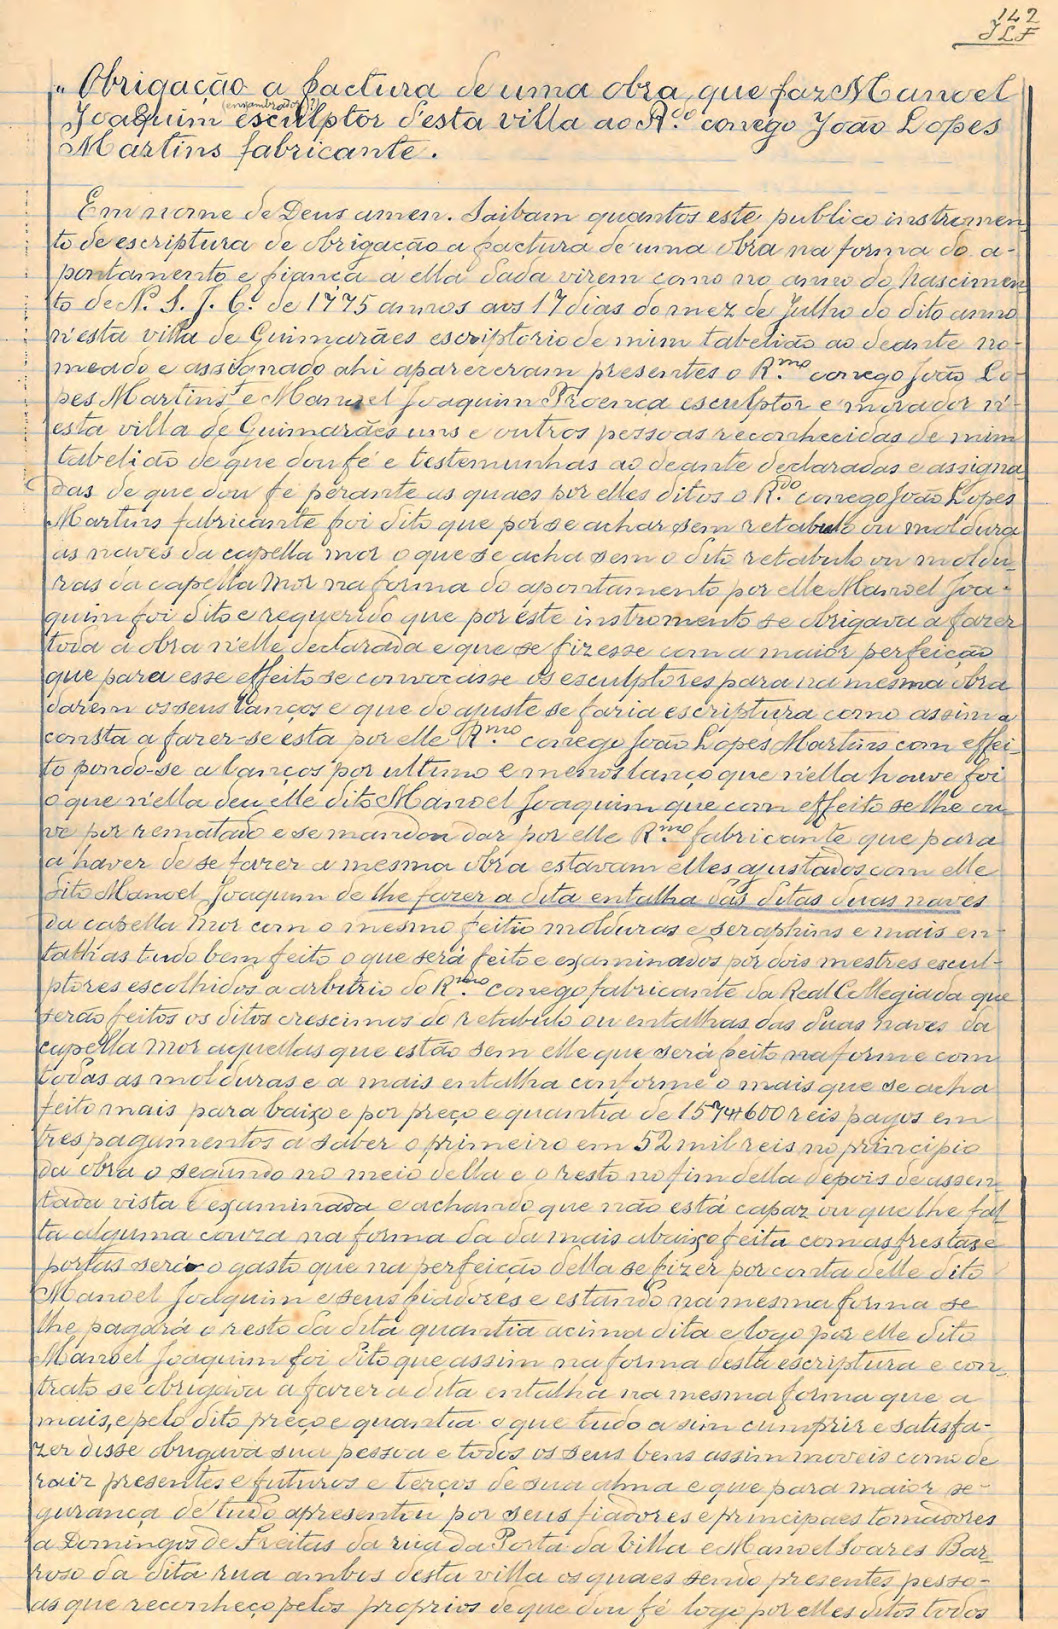 142
JLF
" Obrigação a factura de uma obra, que faz Manoel
(ensamblador?)
Joaquim esculptor d'esta villa ao R.do conego João Lopes
Martins fabricante.
Em nome de Deus amen. Saibam quantos este publico instromen-
to de escriptura de obrigação a factura de uma obra na forma do a-
pontamento e fiança a ella dada virem como no anno do Nascimen-
to de N. S. J. C. de 1775 annos aos 17 dias do mez de Julho do dito anno
n'esta villa de Guimarães escriptorio de mim tabelião ao deante no-
meado e assignado ahi apareceram presentes o R.mo conego João Lo-
pes Martins e Manuel Joaquim Proença esculptor e morador n'-
esta villa de Guimarães uns e outros pessoas reconhecidas de mim
tabelião de que dou fé e testemunhas ao deante declaradas e assigna-
das de que dou fe perante as quaes por elles ditos o R.do conego João Lopes
Martins fabricante foi dito que por se achar sem retabulo ou moldura
as naves da capella mor o que se acha sem o dito retabulo ou moldu-
ras da capella mor na forma do apontamento por elle Manoel Joa-
quim foi dito e requerido que por este instromento se obrigava a fazer
toda a obra n'elle declarada e que se fizesse com a maior perfeição
que para esse effeito se convocasse os esculptores para na mesma obra
darem os seus lanços e que do ajuste se faria escriptura como assim a
consta a fazer-se esta por elle R.mo conego João Lopes Martins com effei-
to pondo-se a lanços por ultimo e menos lanço que n'ella houve foi
o que n'ella deu elle dito Manoel Joaquim que com effeito se lhe ou-
ve por rematado e se mandou dar por elle R.mo fabricante que para
a haver de se fazer a mesma obra estavam elles ajustados com elle
dito Manoel Joaquim de lhe fazer a dita entalha das ditas duas naves
da capella mor com o mesmo feitio molduras e seraphins e mais en-
talhas tudo bem feito o que será feito e examinados por dois mestres escul-
ptores escolhidos a arbitrio do R.mo conego fabricante da Real Collegiada que
serão feitos os ditos crescimos do retabulo ou entalhas das duas naves da
capella mor aquellas que estão sem elle que será feito na forme com
todas as molduras e a mais entalha conforme o mais que se acha
feito mais para baixo e por preço e quantia de 157$600 reis pagos em
tres pagamentos a saber o primeiro em 52 mil reis no principio
da obra o segundo no meio della e o resto no fim della depois de assen-
tada vista e examinada e achando que não está capaz ou que lhe fal-
ta alguma couza na forma da da mais abaixo feita com as frestas e
portas será o gasto que na perfeição della se fizer por conta delle dito
Manoel Joaquim e seus fiadores e estando na mesma forma se
lhe pagará o resto da dita quantia acima dita e logo por elle dito
Manoel Joaquim foi dito que assim na forma desta escriptura e con-
trato se obrigava a fazer a dita entalha na mesma forma que a
mais, e pelo dito preço e quantia o que tudo a sim cumprir e satisfa-
zer disse obrigava sua pessoa e todos os seus bens assim moveis como de
raiz presentes e futuros e terços de sua alma e que para maior se-
gurança de tudo apresentou por seus fiadores e principaes tomadores
a Domingos de Freitas da rua da Porta da Villa e Manoel Soares Bar-
roso da dita rua ambos desta villa os quaes sendo presentes pesso-
as que reconheço pelos proprios de que dou fé logo por elles ditos todos